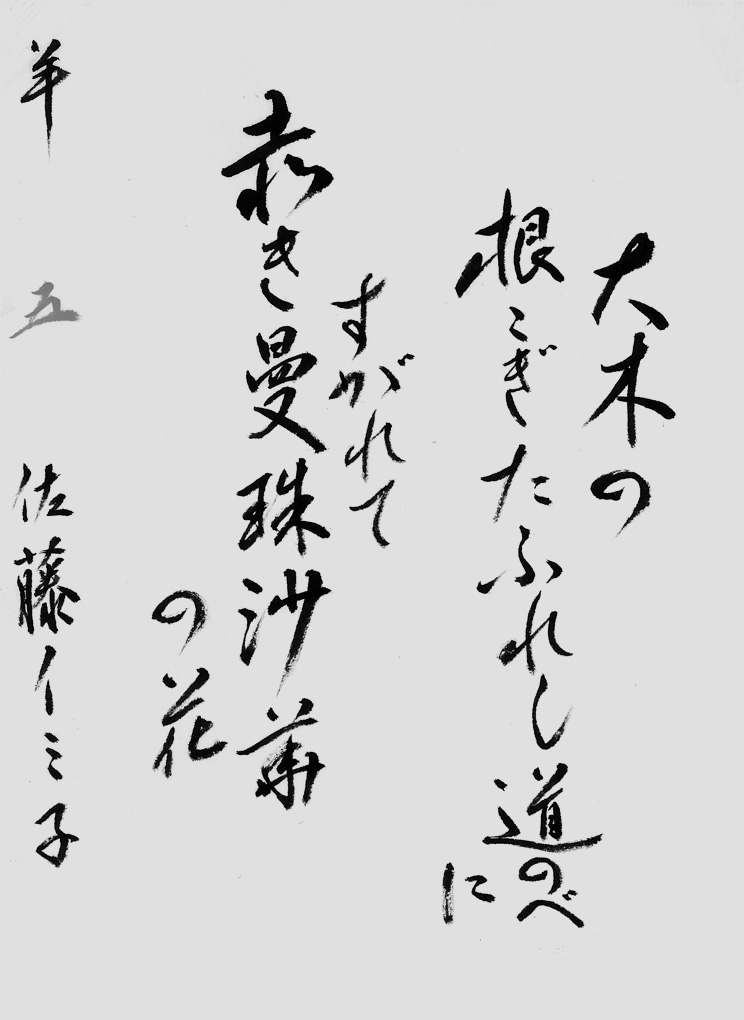 大木の
根こぎたふれし道のべ
に
すがれて
赤き曼珠沙華
の花
羊 五 佐藤イミ子